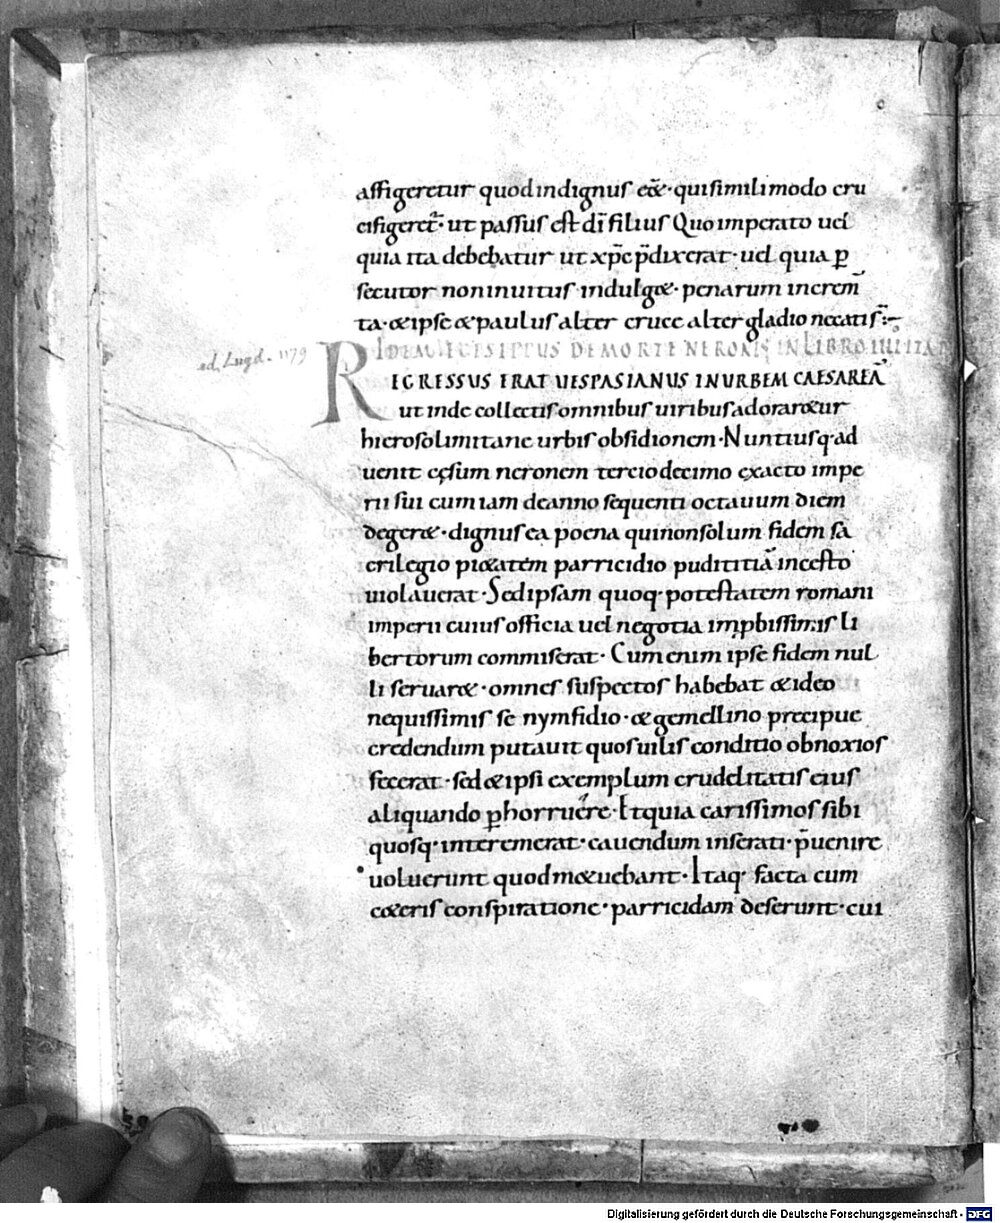 affigeretur quod indignus eēt · qui simili modo cru
cifigeret̄ · ut passus est dī filius Quo imperato uel
quia ita debebatur ut xp̄c p̄dixerat · uel quia ꝑ
secutor non inuitus indulget · penarum increm̄
ta · et ipse et paulus alter cruce alter gladio necatis
IDEM EGESIPPUS DE MORTE NERONIS IN LIBRO IIII ITA
ed. Lugd.
REGRESSUS ERAT UESPASIANUS IN URBEM CAESAREĀ
ut inde collectis omnibus uiribus adoraretur
hierosolimitane urbis obsidionem · Nuntius q· ad
uenit cęsum neronem tercio decimo exacto impe
rii sui cum iam de anno sequenti octauum diem
degeret · dignus ea poena qui non solum fidem sa
crilegio pietatem parricidio pudititiā incesto
uiolauerat · Sed ipsam quoq· potestatem romani
imperii cuius officia uel negotia imꝓbissimis li
bertorum commiserat · Cum enim ipse fidem nul
li seruaret · omnes suspectos habebat et ideo
nequissimis se nymfidio · et gemellino precipue
credendum putauit quos uilis conditio obnoxios
fecerat · sed et ipsi exemplum crudelitatis eius
aliquando ꝑhorruere · Et quia carissimos sibi
quosq· interemerat · cauendum inserati · p̄uenire
uoluerunt quod metuebant · Itaq· facta cum
ceteris conspiratione · parricidam deserunt · cui
Digitalisierung gefördert durch die Deutsche Forschungsgemeinschaft - DFG